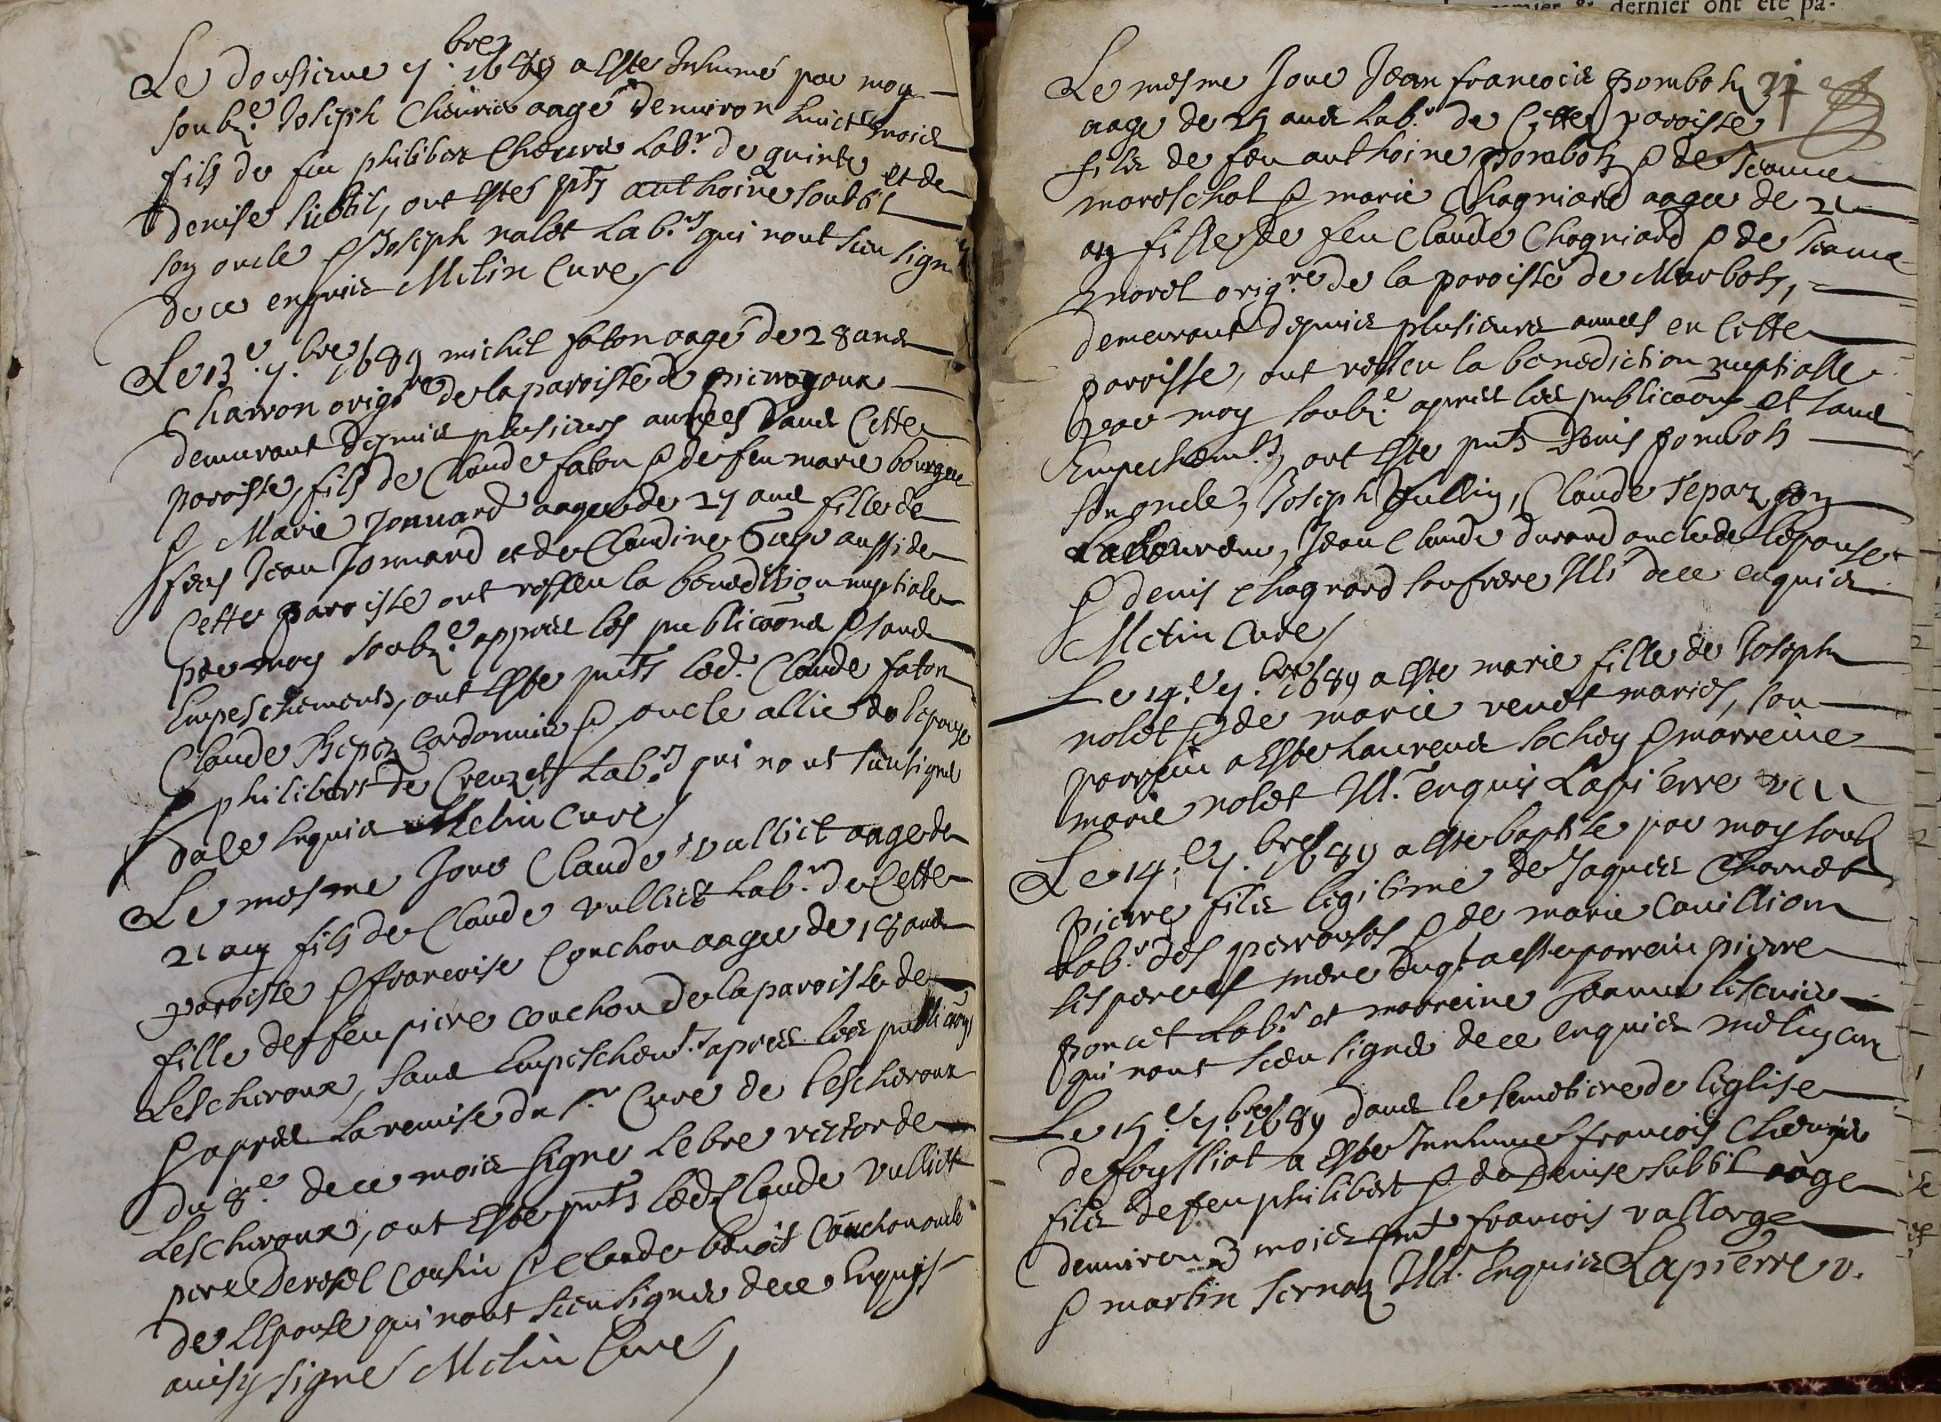 Le dousieme 7.bre 1689 a este Inhumé par moy
soub.é Joseph Cheurie aagé denuiron huict mois
fils de feu philibert Cheurie Lab.r de et de
Denise Subtil, ont estes pnts anthoine Soubtil
son oncle & Joseph nalet Lab.rs qui nont sceu signe
de ce enquis Melin Cure
Le 13.e 7.bre 1689 michel faton aagé de 28 ans
Charron orig.re de la paroisse de
demeurant depuis plusieurs années dans Cette
paroisse, fils de Claude faton & de feu marie
& Marie Jonnard aagee de 25 ans fille de
feus Jean Jonnard et de Claudine aussi de
Cette paroisse ont resseu la benediction nuptiale
par moy soub.é appres les publicaons & sans
Empeschements, ont este pnts led. Claude faton
Claude Cordonnie & oncle allie de lepouse
philibert de Creuzet Lab.rs qui nont sceu signe
dece enquis Melin Cure
Le mesme Jour Claude Vulliet aage de
21 an fils de Claude vulliet Lab.r de Cette
paroisse & francoise Couchon aagee de 18 ans
fille de feu piere couchon de la paroisse de
Lescheroux, sans Empeschem.t apres les publicaons
& apres La remise du s.r Cure de lescheroux
du 8.e de ce mois signe Lebre de
Lescheroux, ont este pnts led Claude Vulliet
pere Cousin & Claude benoit Couchon oncle
de lEpouse qui nont sceu signer dece Enquis
ainsy signé Melin Cure
Le mesme Jour Jean francois pomboz
aage de 25 ans Lab.r de Cette paroisse
fils de feu anthoine pomboz & de Jeanne
mareschal & marie Chagniard aagee de 21
an fille de feu Claude Chagniard & de Jeanne
morel orig.re de la paroisse de Marboz,
demeurant depuis plusieurs annees en Cette
paroisse, ont resseu la benediction nuptialle
par moy soub.é apres les publicaons et sans
Empechem.ts, ont este pnts Denis pomboz
son oncle, Joseph Jullin, Claude son
Laboureur, Jean Claude durand oncle de lepouse
& denis Chagnard son frere Ill. dece enquis
Melin Cure
Le 14.e 7.bre 1689 a este marie fille de Joseph
nolet & de marie mariés, son
parrein a este Laurens sochey & marreine
marie nolet Ill. enquis Lapierre
Le 14.e 7.bre 1689 a este baptise par moy soub
pierre filz legitime de Jaques Charnet
Lab.r des perrouses & de marie Couillion
ses pere et mere a este parrein pierre
poncet Lab.r et marreine Jeanne
qui nont sceu signer de ce enquis melin cure
Le 15.e 7.bre 1689 dans le semetiere de leglise
de foyssiat a este Innhumé francois Cheurie
filz de feu philibert & de Denise subtil aage
denuiron 3 mois pnt francois vallorge
& martin Ill. Enquis Lapierre v.